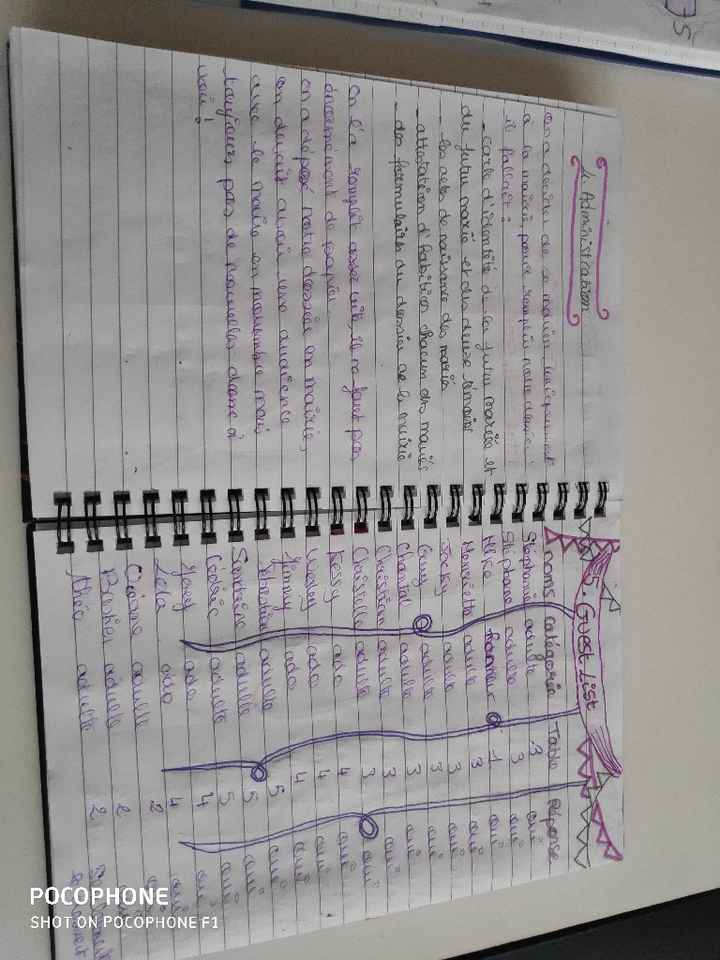 4. Administration
on a décider de se marier,
a la mairie, pour remplir notre
il fallait :
- carte d'identité de la futur mariée et
du futur marié et des deux témoins
- les actes de naissance des mariés
- attestation d'habition chacun des mariés
- des formulaires du dossier de la mairie
on l'a remplit assez vite, il ne faut pas
énormément de papier.
on a déposé notre dossier en mairie,
on devait avoir une audience
avec le maire en novembre mais
toujours pas de nouvelles donc à
voir !
5. Guest List
noms catégorie Table Réponse
Stéphanie adulte 3 oui
Stéphane adulte 3 oui
Mike 1 oui
Henriette adulte 3 oui
Jocky adulte 3 oui
Guy adulte 3 oui
Chantal adulte 3 oui
Christian adulte 3 oui
Christelle adulte 3 oui
Kessy ado 4 oui
Wesley ado 4 oui
Jimmy ado 4 oui
adulte 5 oui
Sandrine adulte 5 oui
Cédric adulte 5 oui
ado 4 oui
Lola ado 4 oui
adulte 2
adulte 2
Théo adulte 2
POCOPHONE
SHOT ON POCOPHONE F1